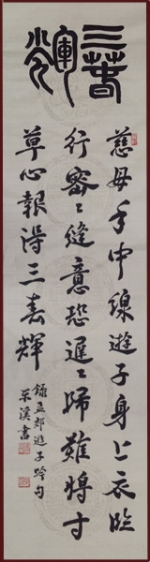 三春輝
慈母手中線遊子身上衣臨
行密〻縫意恐遲〻歸難將寸
草心報得三春輝
錄孟郊遊子吟句
溪書